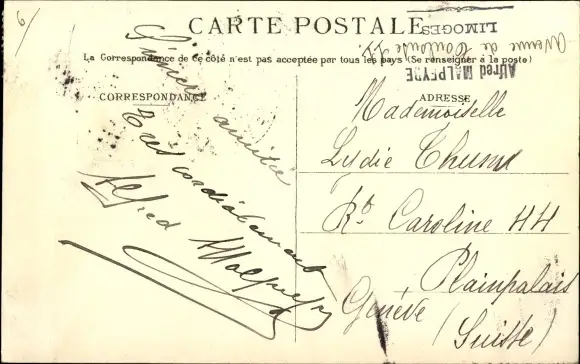 CARTE POSTALE
La Correspondance de ce côté n'est pas acceptée par tous les pays (Se renseigner à la poste)
CORRESPONDANCE
Sincère amitié
Très cordialement
Alfred Malpeyre
ADRESSE
Mademoiselle
Lydie Thum
Rt. Caroline 44
Plainpalais
Genève (Suisse)
Alfred MALPEYRE
Avenue de Toulouse
LIMOGES